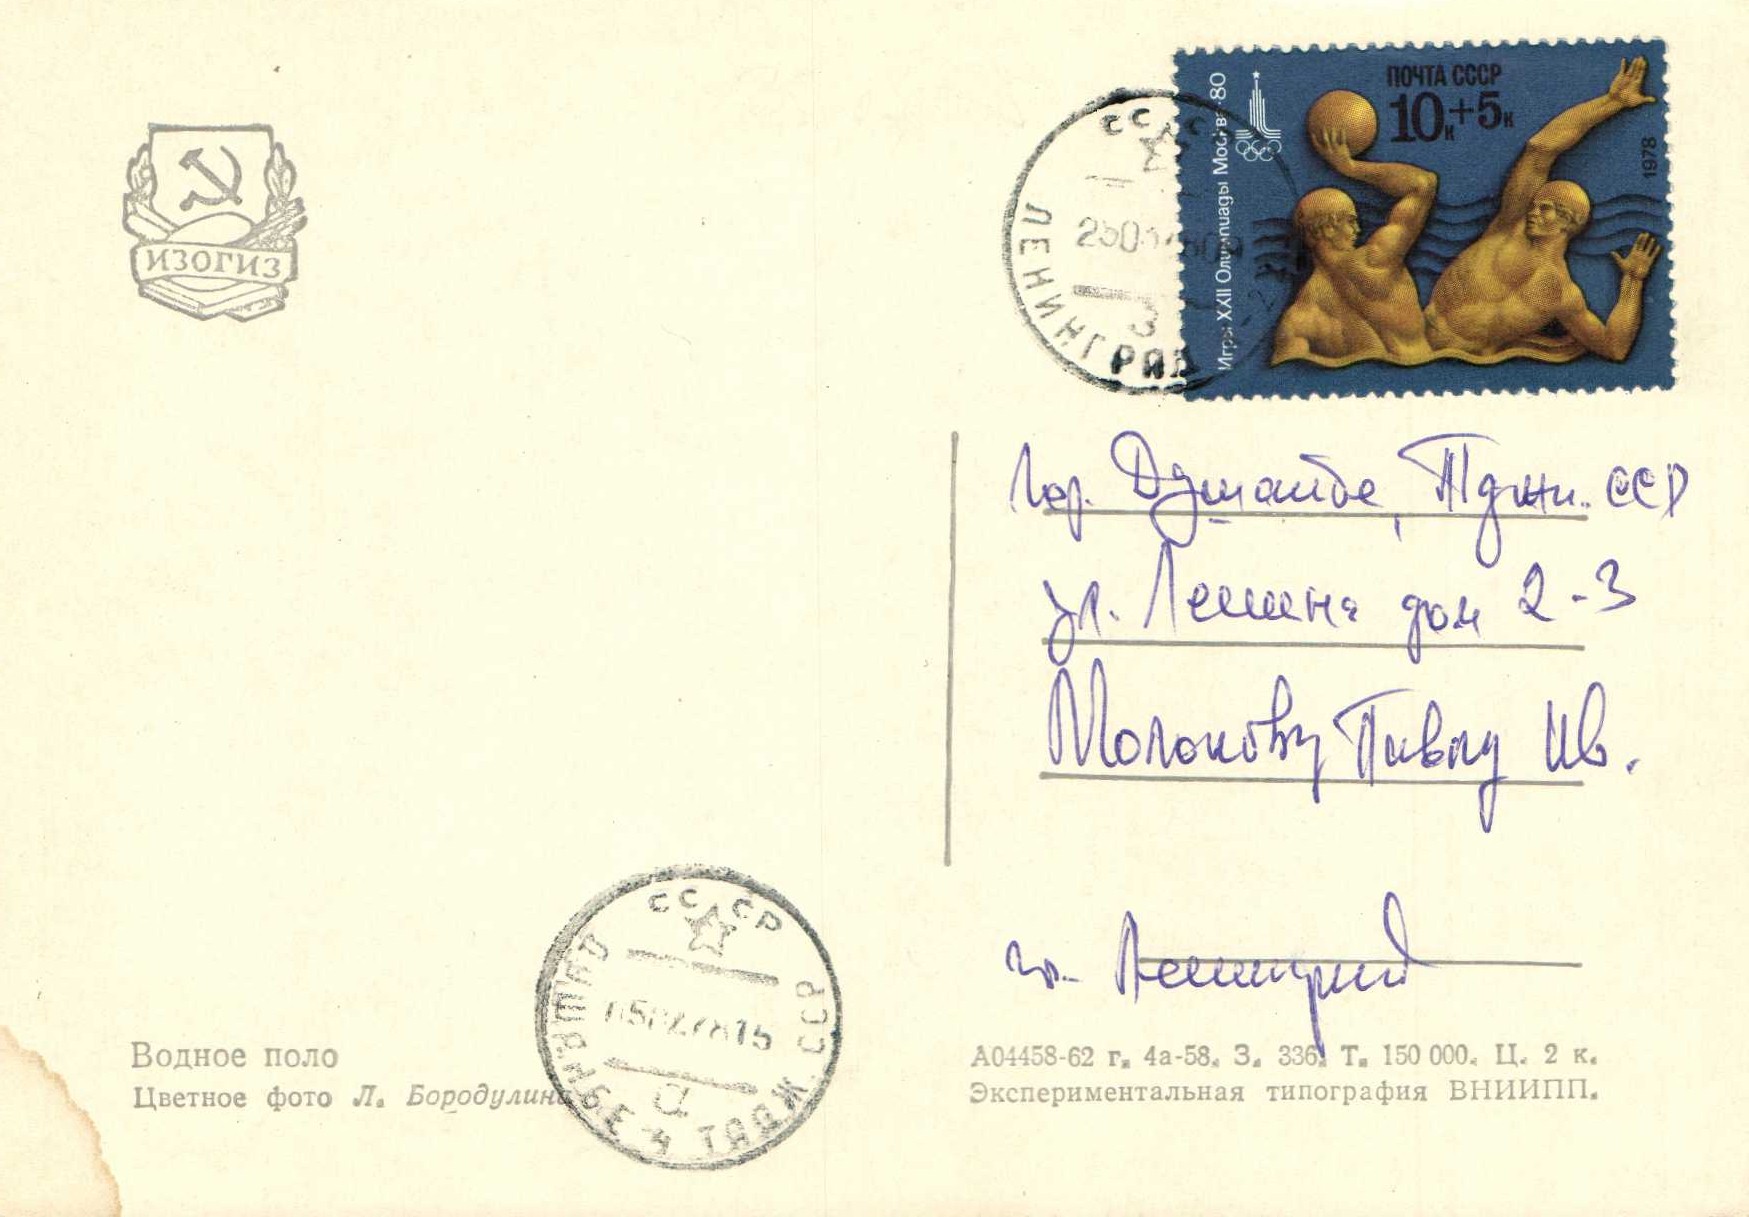 ИЗОГИЗ
ПОЧТА СССР
10к+5к
1978
Игры XXII Олимпиады Москва 80
СССР
ЛЕНИНГРАД
гор. Душанбе, Тадж. ССР
ул. Ленина дом 2-3
Молокову Павлу Ив.
гр. Ленинград
СССР
ДУШАНБЕ-4 ТАДЖ. ССР
а
Водное поло
Цветное фото Л. Бородулина
А04458-62 г. 4а-58. З. 336. Т. 150 000. Ц. 2 к.
Экспериментальная типография ВНИИПП.